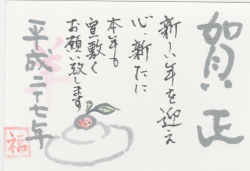 賀正
新しい年を迎え
心、新たに
本年も
宜敷く
お願い致します
平成二十七年
福